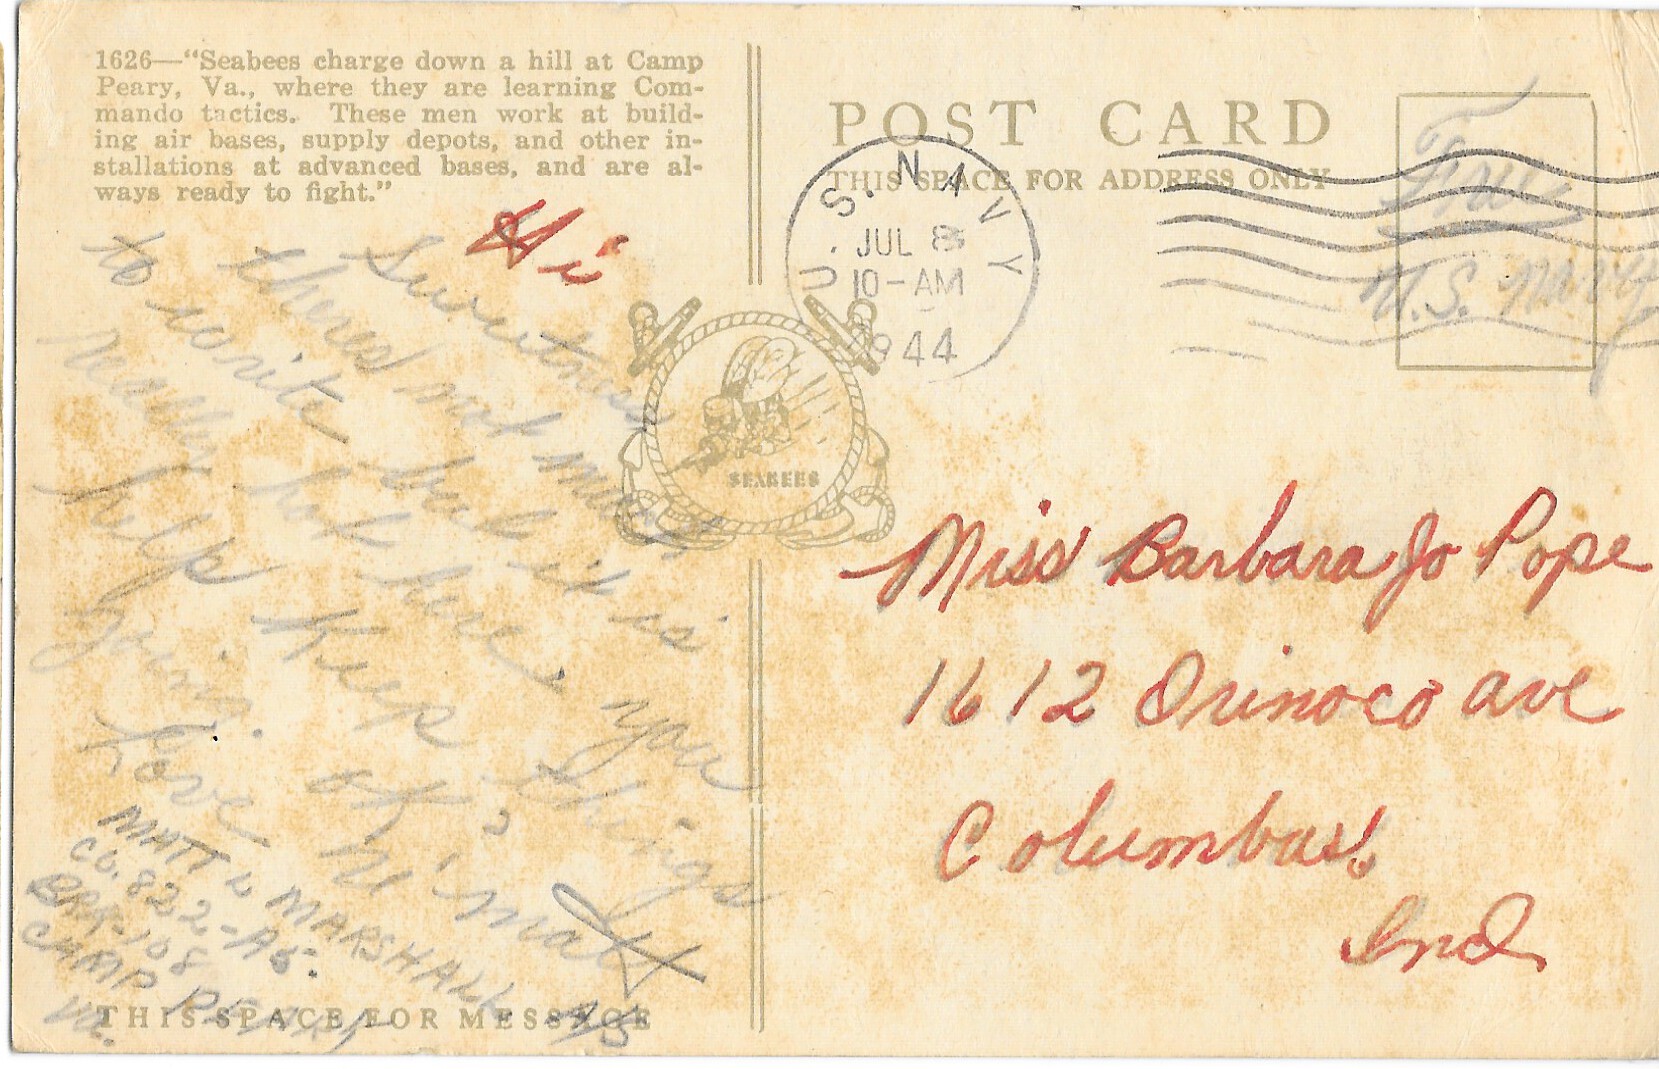 1626—"Seabees charge down a hill at Camp
Peary, Va., where they are learning Com-
mando tactics. These men work at build-
ing air bases, supply depots, and other in-
stallations at advanced bases, and are al-
ways ready to fight."
Hi
Sweetness
theres not much
to write but it is
really hot here, you
help keep things
going.
Love
Matt
MATT W MARSHALL A/S
CO. 822-A5.
BRK-108
CAMP PEARY
Va.
THIS SPACE FOR MESSAGE
SEABEES
POST CARD
THIS SPACE FOR ADDRESS ONLY
U.S. NAVY
JUL 8
10-AM
1944
Free
U.S. Navy
Miss Barbara Jo Pope
1612 Orinoco ave
Columbus!
Ind